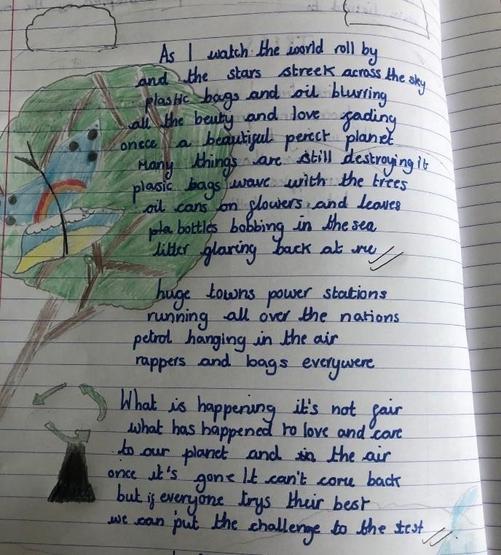 As I watch the world roll by
and the stars streek across the sky
plastic bags and oil blurring
all the beuty and love fading
onece a beautiful perect planet
Many things are still destroying it
plasic bags wave with the trees
oil cans on flowers and leaves
pla bottles bobbing in the sea
litter glaring back at me
huge towns power stations
running all over the nations
petrol hanging in the air
rappers and bags everywere
What is happening it's not fair
what has happened to love and care
to our planet and in the air
once it's gone It can't come back
but if everyone trys their best
we can put the challenge to the test